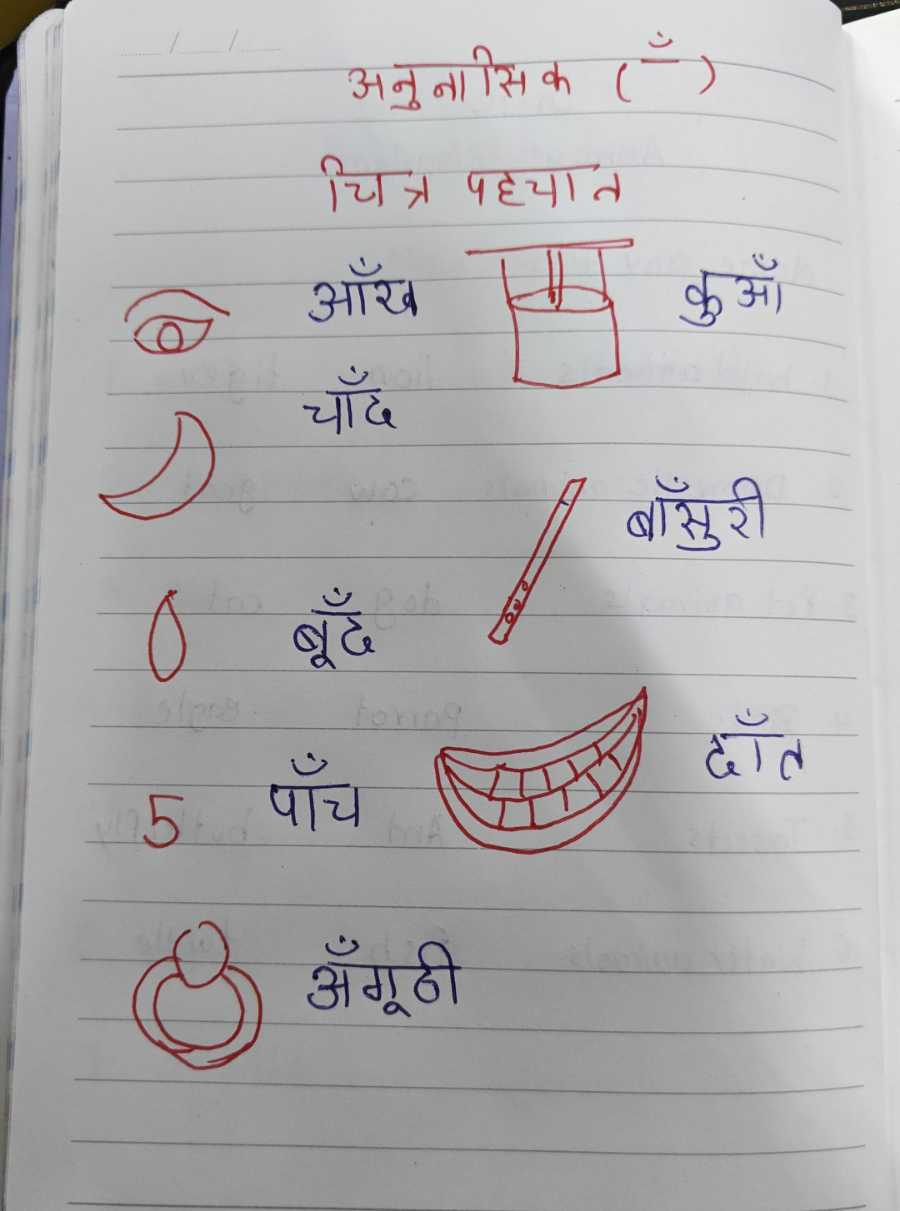 अनुनासिक (ँ)
चित्र पहचान
आँख
कुआँ
चाँद
बाँसुरी
बूँद
दाँत
5 पाँच
अँगूठी